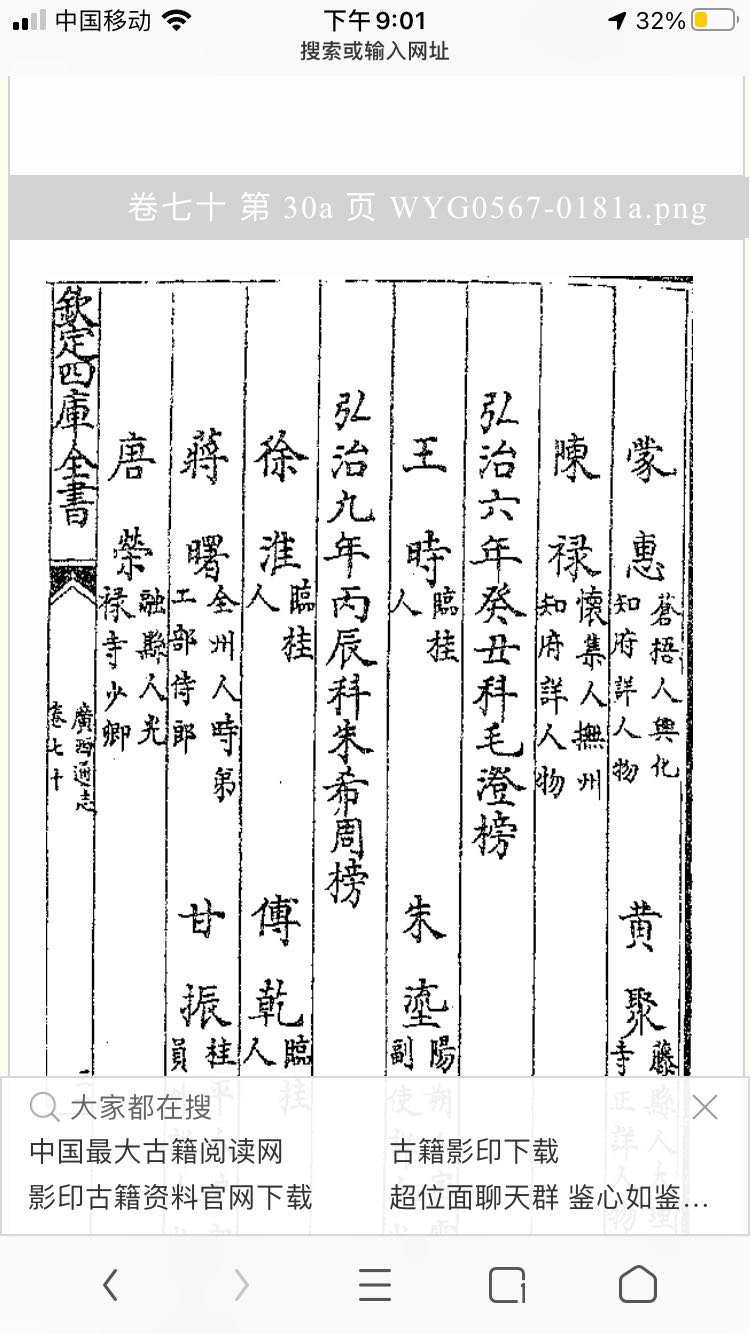 中国移动
下午9:01
32%
搜索或输入网址
卷七十 第 30a 页 WYG0567-0181a.png
蒙惠 蒼梧人興化
知府詳人物
黄聚 藤縣人
寺正詳人物
陳禄 懷集人撫州
知府詳人物
弘治六年癸丑科毛澄榜
王時 臨桂
人
朱瀣 陽朔
副使
弘治九年丙辰科朱希周榜
徐淮 臨桂
人
傅乾 臨桂
人
蔣曙 全州人時第
工部侍郎
甘振 桂平
員
唐榮 融縣人光
禄寺少卿
欽定四庫全書
廣西通志
卷七十
大家都在搜
中国最大古籍阅读网
古籍影印下载
影印古籍资料官网下载
超位面聊天群 鉴心如鉴...
1